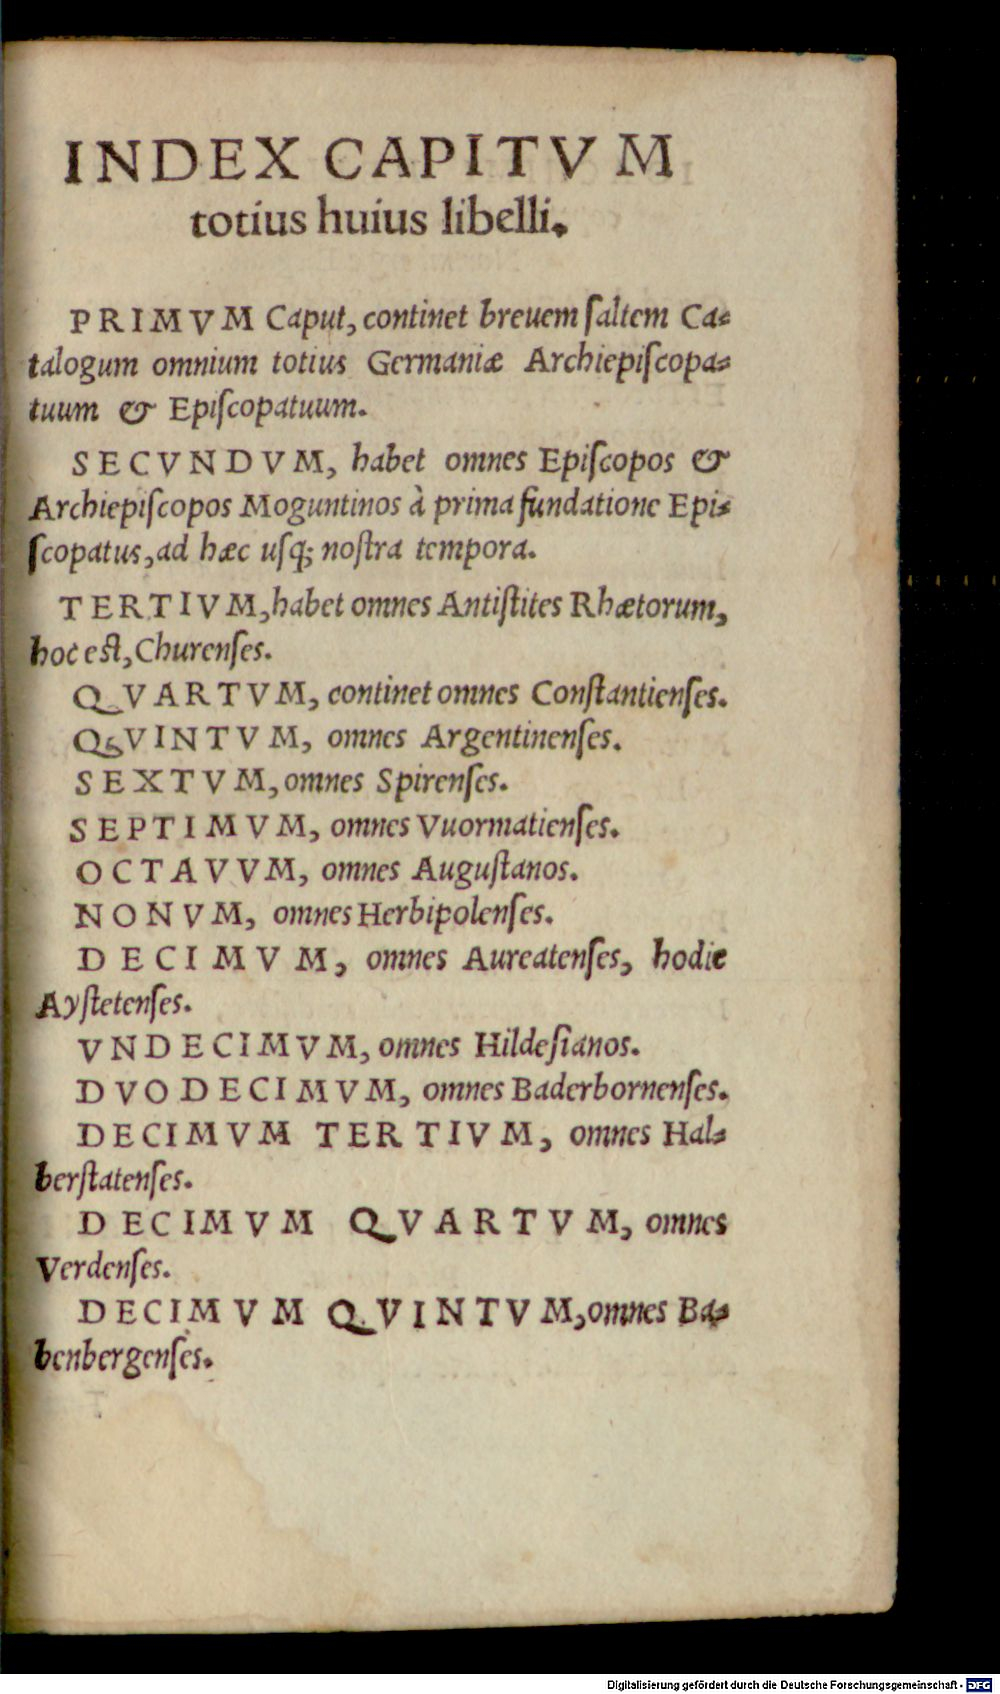 INDEX CAPITVM
totius huius libelli.
PRIMVM Caput, continet breuem ſaltem Ca-
talogum omnium totius Germaniæ Archiepiſcopa-
tuum & Epiſcopatuum.
SECVNDVM, habet omnes Epiſcopos &
Archiepiſcopos Moguntinos à prima fundatione Epi-
ſcopatus, ad hæc uſq; noſtra tempora.
TERTIVM, habet omnes Antiſtites Rhætorum,
hoc eſt, Churenſes.
QVARTVM, continet omnes Conſtantienſes.
QVINTVM, omnes Argentinenſes.
SEXTVM, omnes Spirenſes.
SEPTIMVM, omnes Vuormatienſes.
OCTAVVM, omnes Auguſtanos.
NONVM, omnes Herbipolenſes.
DECIMVM, omnes Aureatenſes, hodie
Ayſtetenſes.
VNDECIMVM, omnes Hildeſianos.
DVODECIMVM, omnes Baderbornenſes.
DECIMVM TERTIVM, omnes Hal-
berſtatenſes.
DECIMVM QVARTVM, omnes
Verdenſes.
DECIMVM QVINTVM, omnes Ba-
benbergenſes.
Digitalisierung gefördert durch die Deutsche Forschungsgemeinschaft - DFG